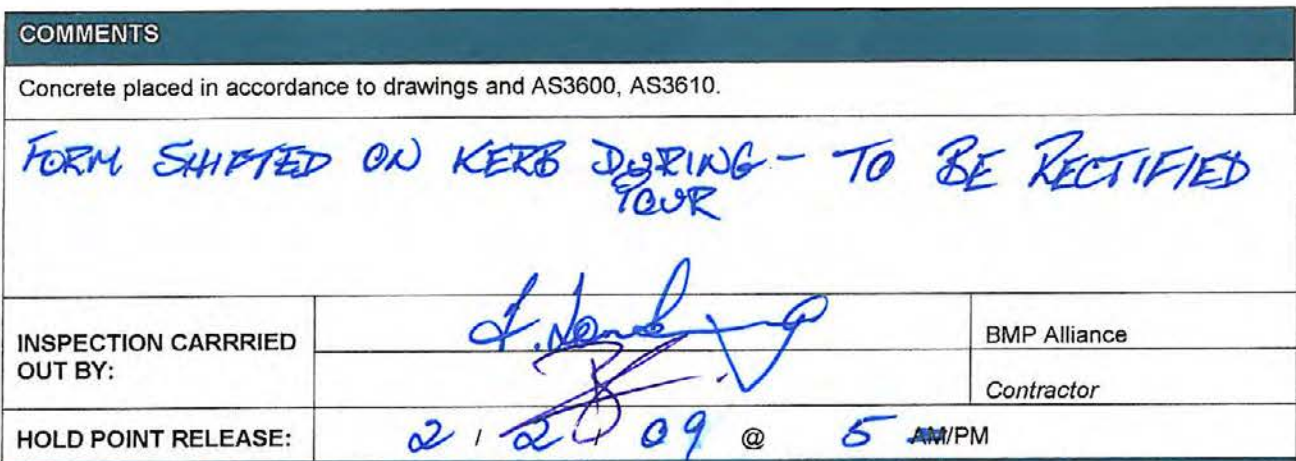 COMMENTS
Concrete placed in accordance to drawings and AS3600, AS3610.
FORM SHIFTED ON KERB DURING - TO BE RECTIFIED
POUR
INSPECTION CARRRIED
OUT BY:
BMP Alliance
Contractor
HOLD POINT RELEASE: 2 / 2 / 09 @ 5 AM/PM